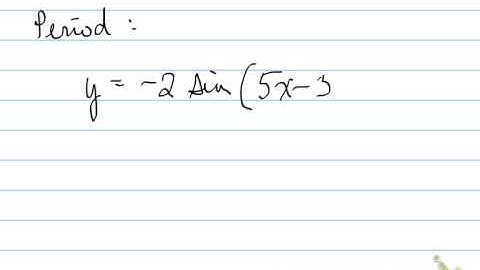 Period :
y = -2 sin (5x-3